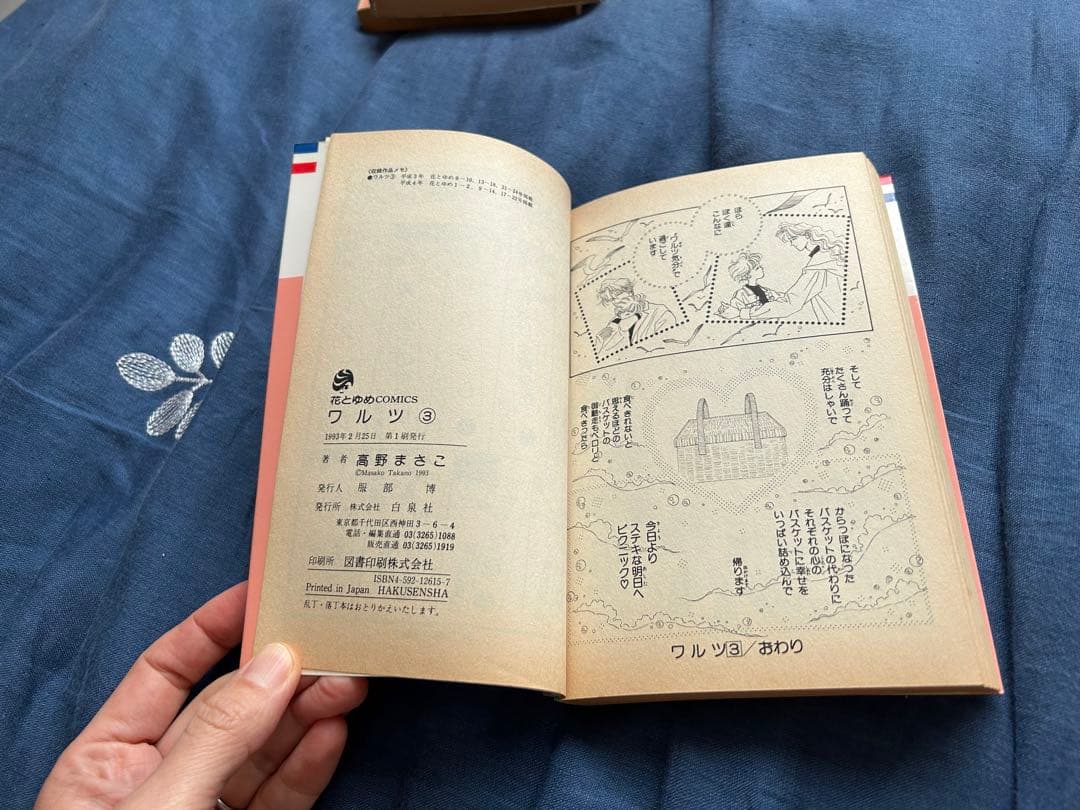 《収録作品メモ》
●ワルツ③ 平成3年 花とゆめ8～10、13～18、21～24号掲載
平成4年 花とゆめ1～2、9～14、17～22号掲載
花とゆめCOMICS
ワルツ ③
1993年2月25日 第1刷発行
著者 高野まさこ
©Masako Takano 1993
発行人 服部 博
発行所 株式会社 白泉社
東京都千代田区西神田3-6-4
電話・編集直通 03(3265)1088
販売直通 03(3265)1919
印刷所 図書印刷株式会社
ISBN4-592-12615-7
Printed in Japan HAKUSENSHA
乱丁・落丁本はおとりかえいたします。
ほら
ぼく達
こんなに
ワルツ気分で
過ごして
います
そして
たくさん踊って
充分はしゃいで
食べきれないと
思えるほどの
バスケットの
御馳走もペロリと
食べきったら
からっぽになった
バスケットの代わりに
それぞれの心の
バスケットに幸せを
いっぱい詰め込んで
帰ります
今日より
ステキな明日へ
ピクニック♡
ワルツ③/おわり